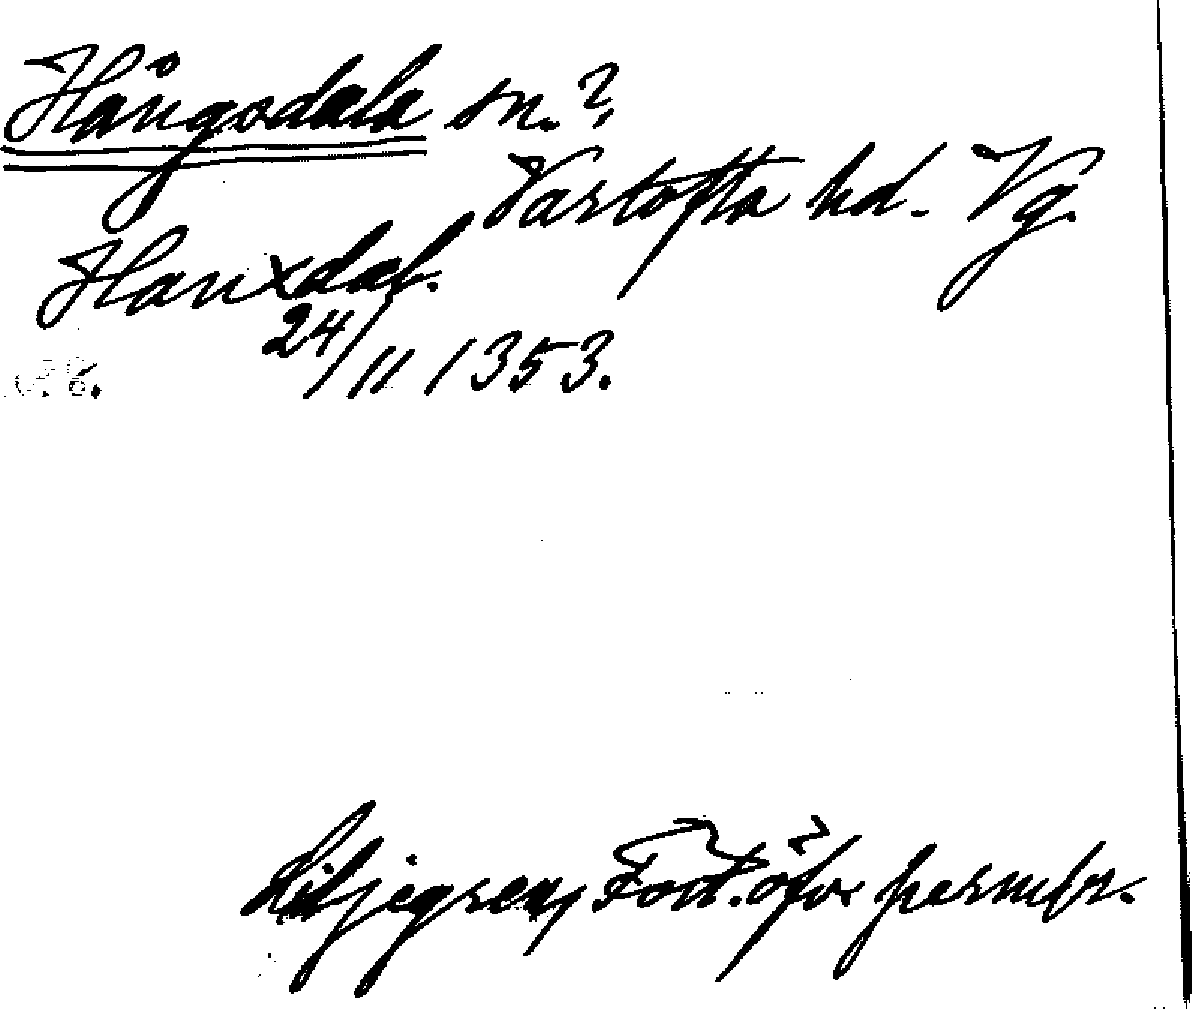 Hångsdala sn.?,
Vartofta hd. Vg.
Hanxdal.
24/11 1353.
Liljegren, Fört. öfver permbr.